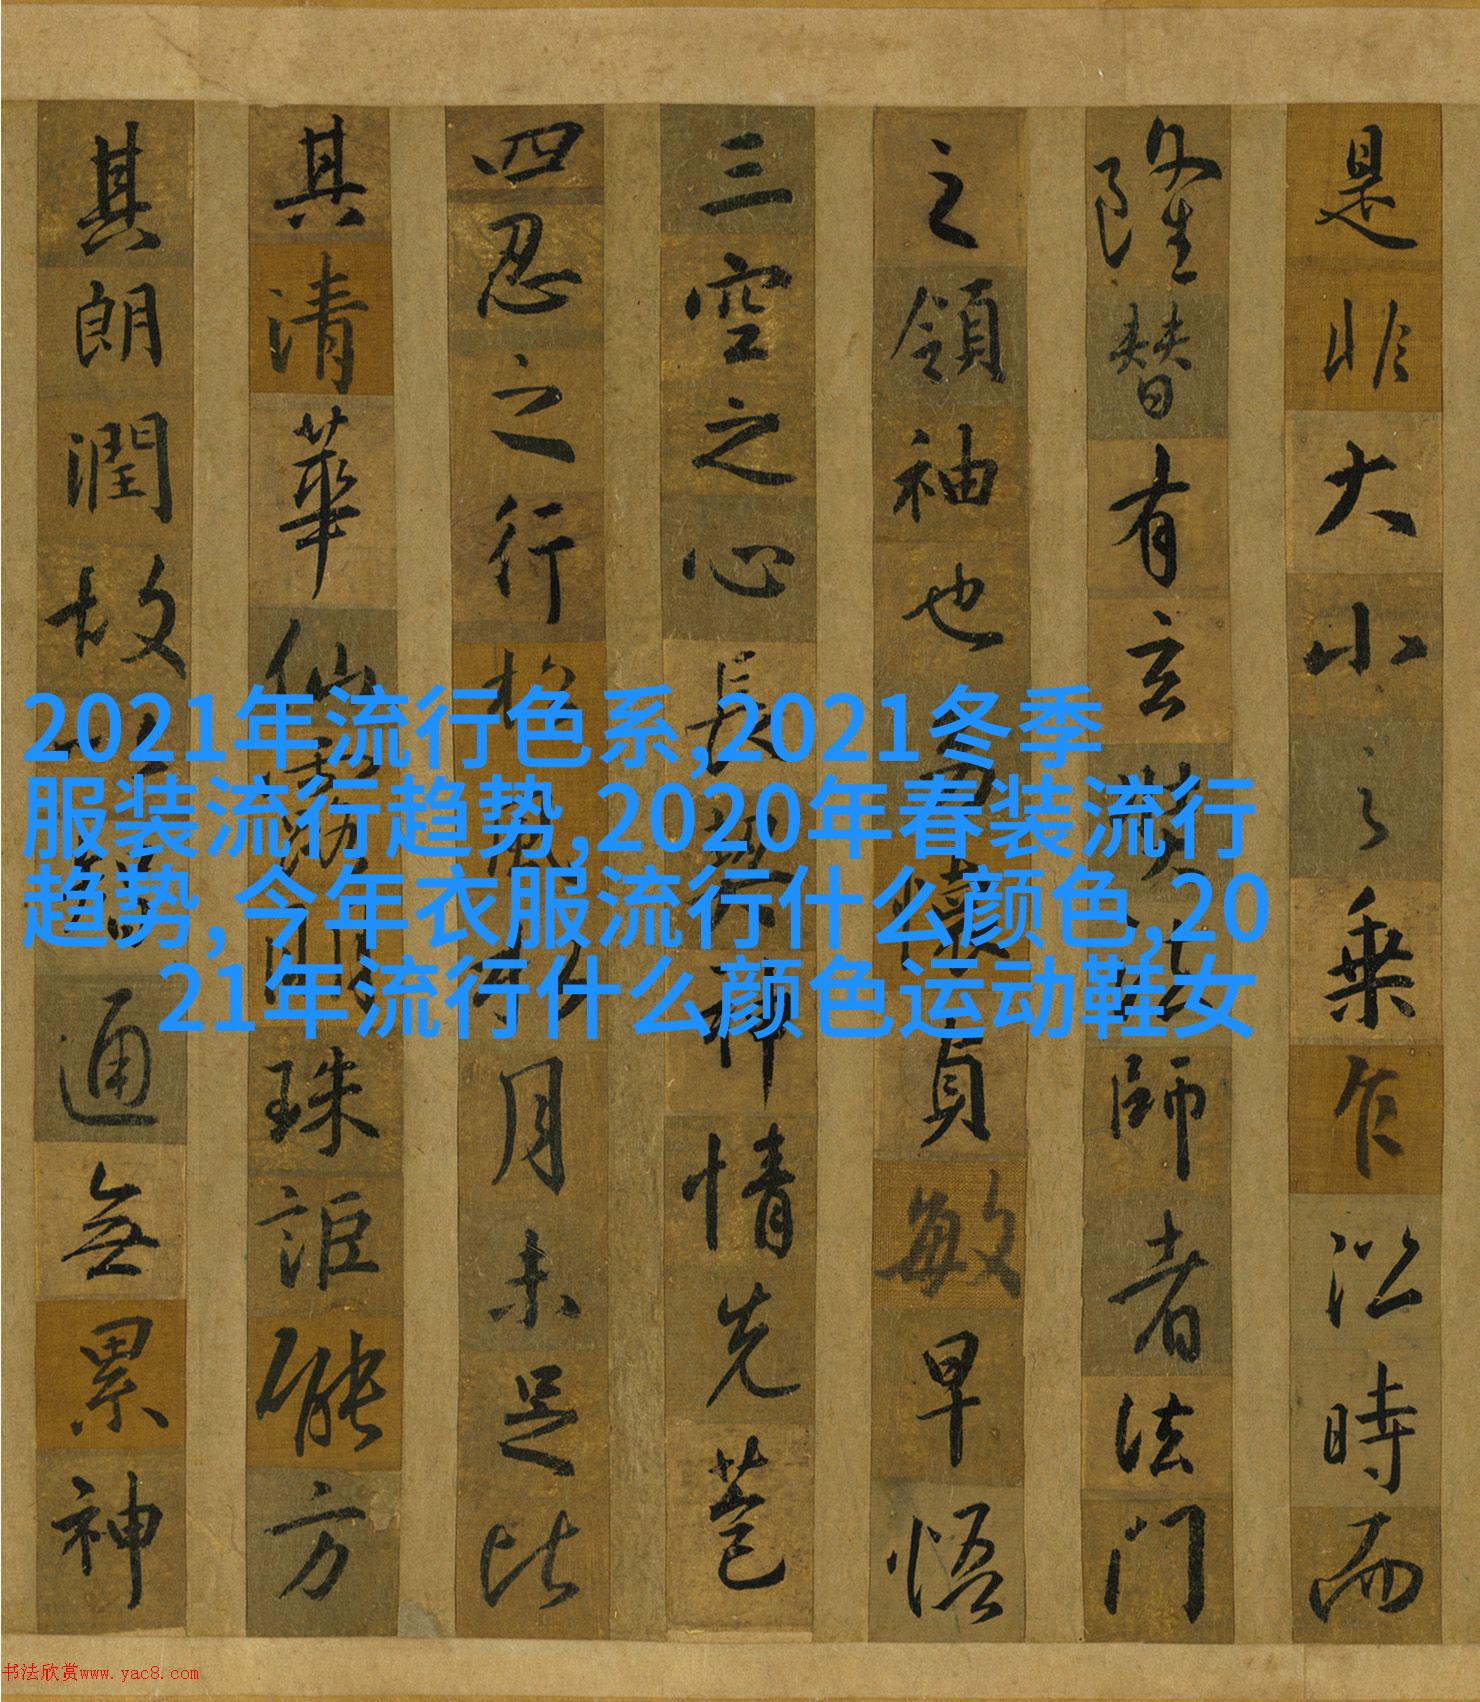 是非大小之乘乍沿時而
隆替有玄奘法師者法門
之領袖也幼懷貞敏早悟
三空之心長契神情先苞
四忍之行松風水月未足比
其清華仙露明珠詎能方
其朗潤故以智通無累神
2021年流行色系,2021冬季
服装流行趋势,2020年春装流行
趋势, 今年衣服流行什么颜色,20
21年流行什么颜色运动鞋女
书法欣赏www.yac8.com